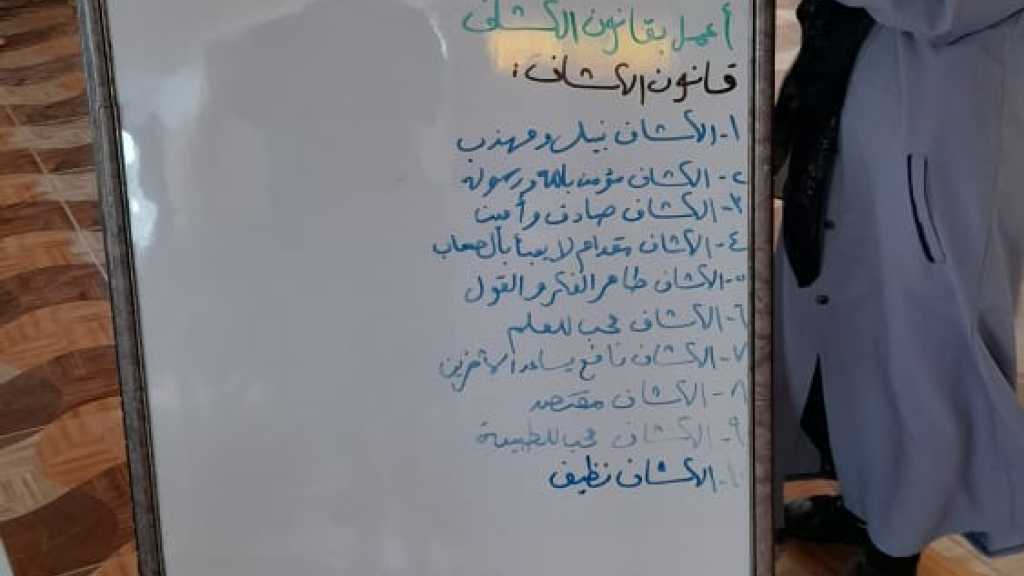 أعمل بقانون الكشاف
قانون الكشاف:
١- الكشاف نبيل ومهذب
٢- الكشاف مؤمن بالله ورسوله
٣- الكشاف صادق وأمين
٤- الكشاف مقدام لا يعبأ بالصعاب
٥- الكشاف طاهر الفكر والقول
٦- الكشاف محب للعلم
٧- الكشاف نافع يساعد الآخرين
٨- الكشاف مقتصد
٩- الكشاف محب للطبيعة
١٠- الكشاف نظيف